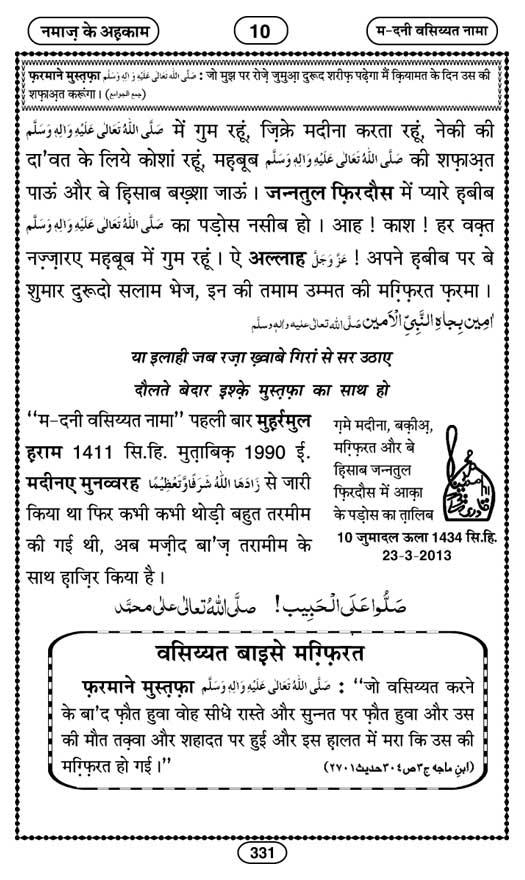 नमाज़ के अहकाम
10
म-दनी वसिय्यत नामा
फ़रमाने मुस्तफ़ा صَلَّى اللهُ تَعَالٰى عَلَيْهِ وَاٰلِهٖ وَسَلَّم : जो मुझ पर रोज़े जुमुआ दुरूद शरीफ़ पढ़ेगा मैं क़ियामत के दिन उस की
शफ़ाअ़त करूंगा। (جمع الجوامع)
صَلَّى اللهُ تَعَالٰى عَلَيْهِ وَاٰلِهٖ وَسَلَّم में गुम रहूं, ज़िक्रे मदीना करता रहूं, नेकी की
दा'वत के लिये कोशां रहूं, महबूब صَلَّى اللهُ تَعَالٰى عَلَيْهِ وَاٰلِهٖ وَسَلَّم की शफ़ाअ़त
पाऊं और बे हिसाब बख़्शा जाऊं। जन्नतुल फ़िरदौस में प्यारे हबीब
صَلَّى اللهُ تَعَالٰى عَلَيْهِ وَاٰلِهٖ وَسَلَّم का पड़ोस नसीब हो। आह ! काश ! हर वक़्त
नज़्ज़ारए महबूब में गुम रहूं। ऐ अल्लाह عَزَّوَجَلَّ ! अपने हबीब पर बे
शुमार दुरूदो सलाम भेज, इन की तमाम उम्मत की मग़्फ़िरत फ़रमा।
اٰمِين بِجَاهِ النَّبِيِّ الْاَمين صلَّى اللّٰه تعالٰى عليه واٰله وسلَّم
या इलाही जब रज़ा ख़्वाबे गिरां से सर उठाए
दौलते बेदार इश्क़े मुस्तफ़ा का साथ हो
“म-दनी वसिय्यत नामा” पहली बार मुहर्रमुल
हराम 1411 सि.हि. मुताबिक़ 1990 ई.
मदीनए मुनव्वरह زَادَهَا اللّٰهُ شَرَفًا وَّتَعْظِيْمًا से जारी
किया था फिर कभी कभी थोड़ी बहुत तरमीम
की गई थी, अब मज़ीद बा'ज़ तरामीम के
साथ हाज़िर किया है।
ग़मे मदीना, बक़ीअ़,
मग़्फ़िरत और बे
हिसाब जन्नतुल
फ़िरदौस में आक़ा
के पड़ोस का त़ालिब
10 जुमादल ऊला 1434 सि.हि.
23-3-2013
صَلُّوا عَلَى الْحَبِيب! صلَّى اللّٰهُ تعالٰى على محمَّد
वसिय्यत बाइसे मग़्फ़िरत
फ़रमाने मुस्तफ़ा صَلَّى اللهُ تَعَالٰى عَلَيْهِ وَاٰلِهٖ وَسَلَّم : “जो वसिय्यत करने
के बा'द फ़ौत हुवा वोह सीधे रास्ते और सुन्नत पर फ़ौत हुवा और उस
की मौत तक़्वा और शहादत पर हुई और इस हालत में मरा कि उस की
मग़्फ़िरत हो गई।” (ابنِ ماجه ج٣ ص٣٠٤ حديث ٢٧٠١)
331